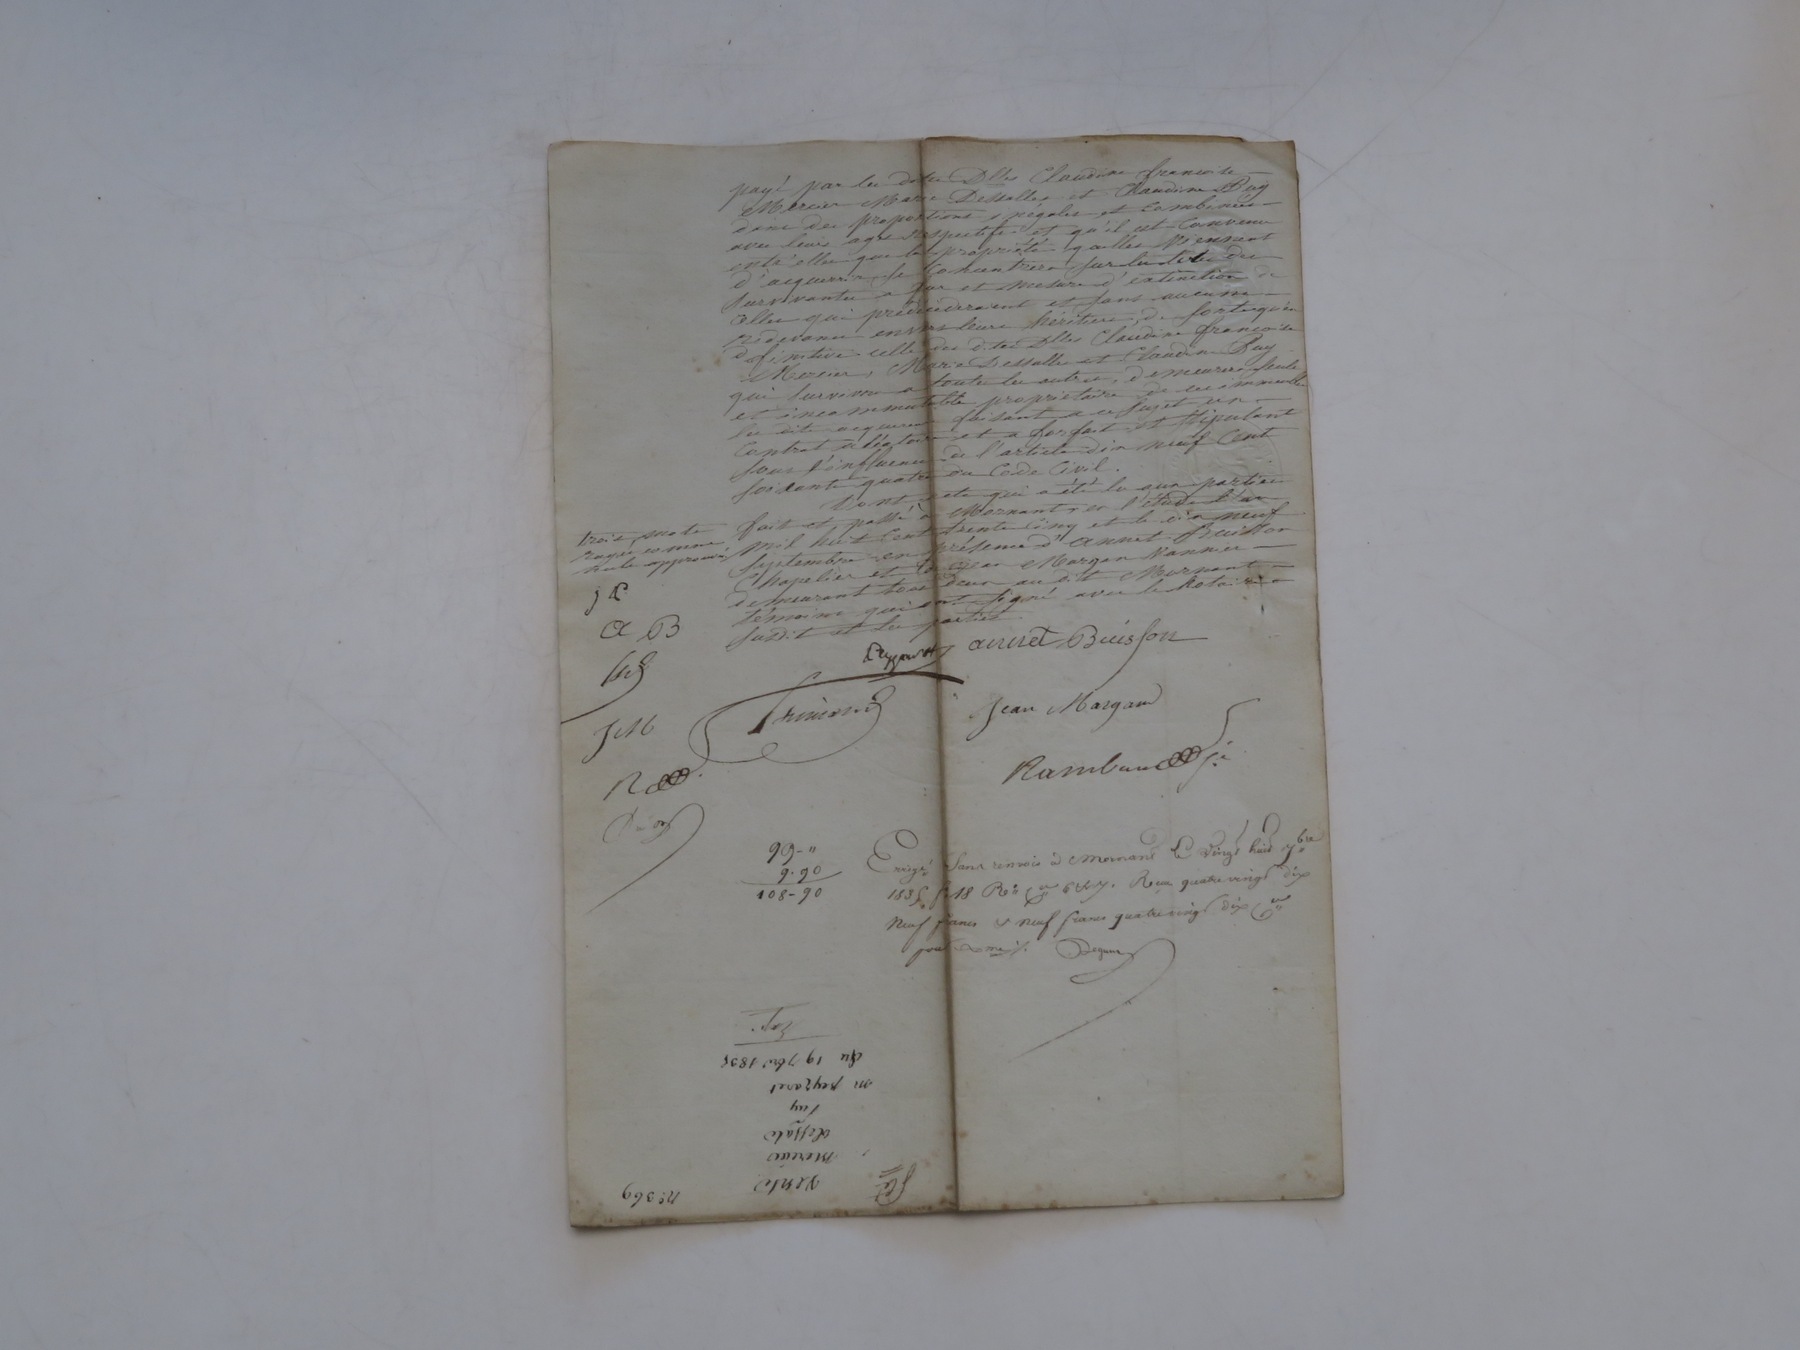 payé par les dites Dlles Claudine françoise
Mercier Marie Dessalles et Claudine Puy
dans des proportions inégales et combinées
avec leurs ages respectifs et qu'il est convenu
entr'elles que la propriété qu'elles viennent
d'acquerir se concentrera sur les têtes des
survivantes a fur et mesure d'extinction de
celles qui précéderaient et sans aucune
redevance envers leurs héritiers, de sorte qu'en
définitive celle des dites Dlles Claudine françoise
Mercier, Marie Dessalles et Claudine Puy
qui survivra a toutes les autres, demeurera seule
et incommutable propriétaire de ces immeubles
les dites acquereurs faisant a ce sujet un
Contrat aléatoire et a forfait et stipulant
sous l'influence de l'article dix neuf cent
soixante quatre du Code Civil.
Dont acte qui a été lu aux parties
fait et passé à Mornant, en l'étude l'an
mil huit cent trente cinq et le dix neuf
septembre en présence d'annet Buisson
Chapelier et Jean Margan Vannier
demeurant tous deux au dit Mornant
témoins qui ont signé avec le Notaire
susdit et les parties
trois mots
rayés comme
nuls approuvés
A B
J M
R
annet Buisson
Jean Margan
Rambaud
"-99
9.90
108-90
Enregé sans renvoi à Mornant le vingt huit 7bre
1835 f. 18 Ro Reçu quatre vingt dix
Neuf francs & neuf francs quatre vingt dix Cmes
pour
No 369
Vente
Mercier
Dessale
Puy
du 19 7bre 1835